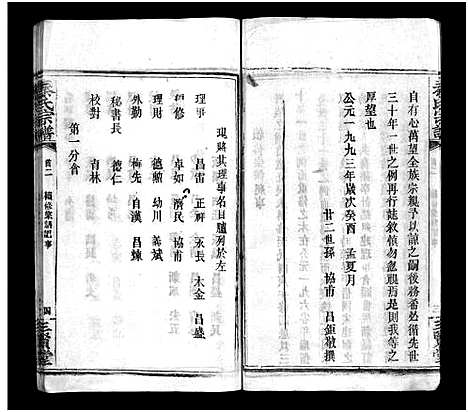 自有心萬望全族宗親予以諒之嗣後務希必循先世
三十年一世之例再行誌敘慎勿忽視焉是則我等之
厚望也
公元一九九三年歲次癸酉 孟夏月
廿二世孫 協甫 昌鉅敬撰
現將其理事名目臚列於左
理事 昌雷 正祥 永長 木金 昌盛
編修 卓如 濟民 協甫
理財 德勳 幼川 義斌
外勤 梅先 自漢 昌煉
秘書長 德仁
校對 育林
第一分會
氏宗譜
首二 續修衆譜記事
四 三賢堂